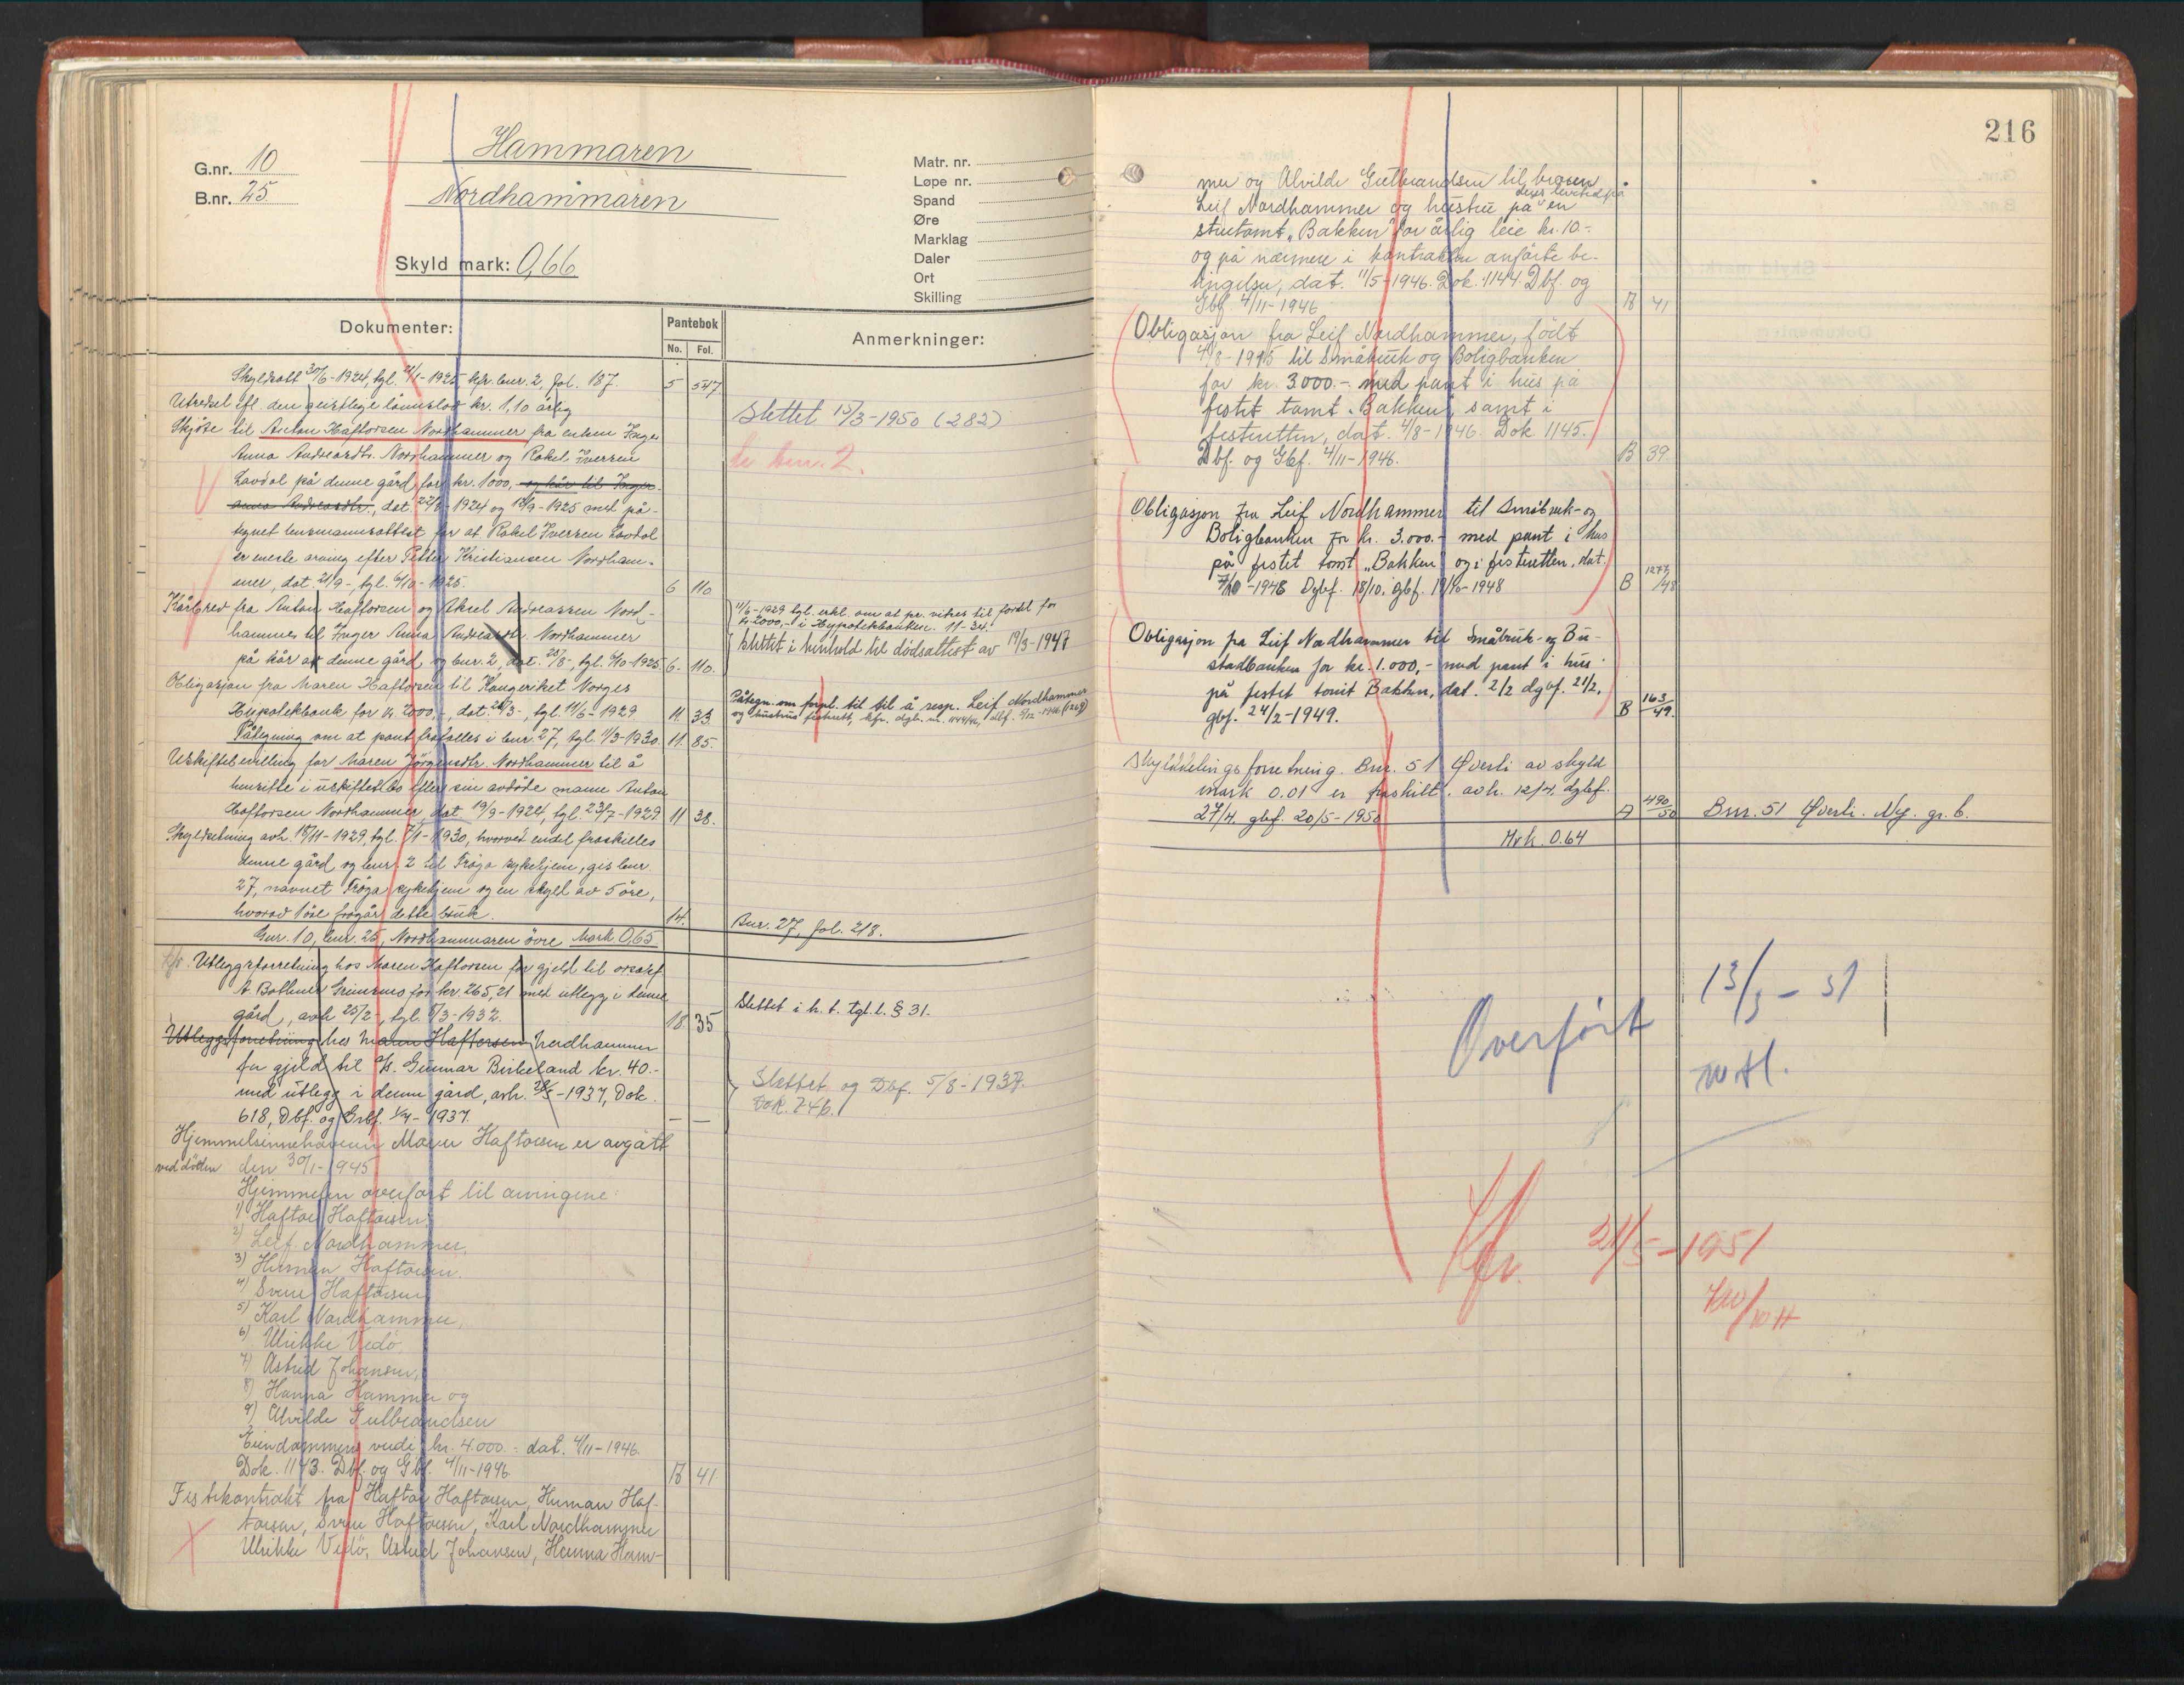 Hammaren
G.nr. 10
Nordhammaren
B.nr. 25.
Skyld mark: 0,66
Matr. nr.
Løpe nr.
Spand
Øre
Marklag
Daler
Ort
Skilling
Dokumenter:
Pantebok
No. Fol.
Anmerkninger:
Skyldsatt 30/6-1924, tgl. 1925, kfr. bnr. 2, fol. 187. 5 547
Utredsel efl. den geistlige lönnslov kr. 1,10 årlig
Slettet 15/3-1950 (282)
Skjöte til Anton Haftorsen Nordhammer fra enken Inger
Anna Andreasdtr. Nordhammer og Rakel Iversen
Se bnr. 2.
Lovdal på denne gård, for kr. 1000, og kår til Inger
anna Andreasdtr., dat. 1924 og 1925 med på-
tegnet lensmannsattest for at Rakel Iversen Lovdal
er eneste arving efter Petter Kristiansen Nordham-
mer, dat. 21/9-, tgl. 6/10-1925. 6 110
Kårbrev fra Anton Haftorsen og Aksel Andreassen Nord-
hammer til Inger Anna Andreasdtr. Nordhammer
på kår av denne gård, og bnr. 2, dat. 25/8-, tgl. 6/10-1925 6. 110.
11/6-1929 tgl. erkl. om at pr. vikes til fordel for
kr. 2000,- i Hypotekbanken. 11-34.
Slettet i henhold til dödsattest av 19/3-1947
Obligasjon fra Maren Haftorsen til Kongeriket Norges
Hypotekbank for kr. 2000,-, dat. 26/3-, tgl. 11/6-1929 11 33
Påtegn. om forpl. til til å resp. Leif Nordhammer
og hustrus festerett, kfr. dgb. nr. 1144/46, dbf.
Påtegning om at pant frafalles i bnr. 27, tgl. 11/3-1930. 11 85.
Uskiftebevilling for Maren Jörgensdtr. Nordhammer til å
hensitte i uskiftet bo efter sin avdöde mann Anton
Haftorsen Nordhammer, dat 19/9-1924, tgl 23/7-1929 11 38.
Skyldeling avh. 18/11-1929, tgl. 1930, hvorved endel fraskilles
denne gård og bnr. 2 til Fröya sykehjem, gis bnr.
27, navnet Fröya sykehjem og en skyld av 5 öre,
hvorav 1 öre fragår dette bruk. 14.
Bnr. 27, fol. 218.
Gnr. 10, bnr. 25, Nordhammaren övre Mark 0,65
Utleggsforretning hos Maren Haftorsen for gjeld til orsakf.
A Bothner Grimsmo for kr 265,21 med utlegg i denne
gård, avh 25/2-, tgl. 8/3-1932. 18 35
Slettet i h. t. tgl. l. § 31.
Utleggsforretning hos Maren Haftorsen Nordhammer
for gjeld til A/S. Gunnar Birkeland kr. 40.-
med utlegg i denne gård, avh. 28/5-1937, Dok.
618, Dbf. og Grbf. 1/7-1937. — —
Slettet og Dbf. 5/8-1937.
Dok. 746.
Hjemmelsinnehaveren Maren Haftorsen er avgått
ved döden den 30/1-1945
Hjemmelen overfört til arvingene:
1) Haftor Haftorsen,
2) Leif Nordhammer,
3) Herman Haftorsen.
4) Sverre Haftorsen
5) Karl Nordhammer,
6) Ulrikke Vedö,
7) Astrid Johansen,
8) Hanna Hammer og
9) Alvilde Gulbrandsen
Eiendommens verdi kr. 4.000.- dat. 4/11-1946.
Dok. 1143. Dbf. og Gbf. 4/11-1946 B 41
Festekontrakt fra Haftor Haftorsen, Herman Haf-
torsen, Sverre Haftorsen, Karl Nordhammer
Ulrikke Vedö, Astrid Johansen, Hanna Ham-
216
mer og Alvilde Gulbrandsen til broren
Leif Nordhammer og hustru på deres levetid på en
tuetomt "Bakken" for årlig leie kr. 10.-
og på nærmere i kontrakten anförte be-
tingelser, dat. 11/5-1946. Dok. 1144. Dbf. og
Gbf. 4/11-1946 B 41
Obligasjon fra Leif Nordhammer, födt
4/8-1915 til Småbruk og Boligbanken
for kr. 3000.- med pant i hus på
festet tomt "Bakken" samt i
festeretten, dat. 4/8-1946. Dok 1145.
Dbf. og Gbf. 4/11-1946. B 39.
Obligasjon fra Leif Nordhammer til Småbruk- og
Boligbanken for kr. 3.000.- med pant i hus
på festet tomt "Bakken" og i festeretten, dat.
7/10-1948 Dgbf. 18/10. gbf. 19/10-1948 B 1277/48
Obligasjon fra Leif Nordhammer til Småbruk- og Bu-
stadbanken for kr. 1.000,- med pant i hus
på festet tomt Bakken, dat. 2/2 dgbf. 21/2,
gbf. 24/2-1949. B 163/49.
Skylddelingsforretning. Bnr. 51 Øverli av skyld
mark 0.01 er fraskilt. avh. 12/4. dgbf.
27/4. gbf. 20/5-1950 A 490/50 Bnr. 51 Øverli. Ny. gr. b.
Mrk. 0.64
Overfört 13/3-51
WH.
Kfr. 21/5-1951
KW/WH